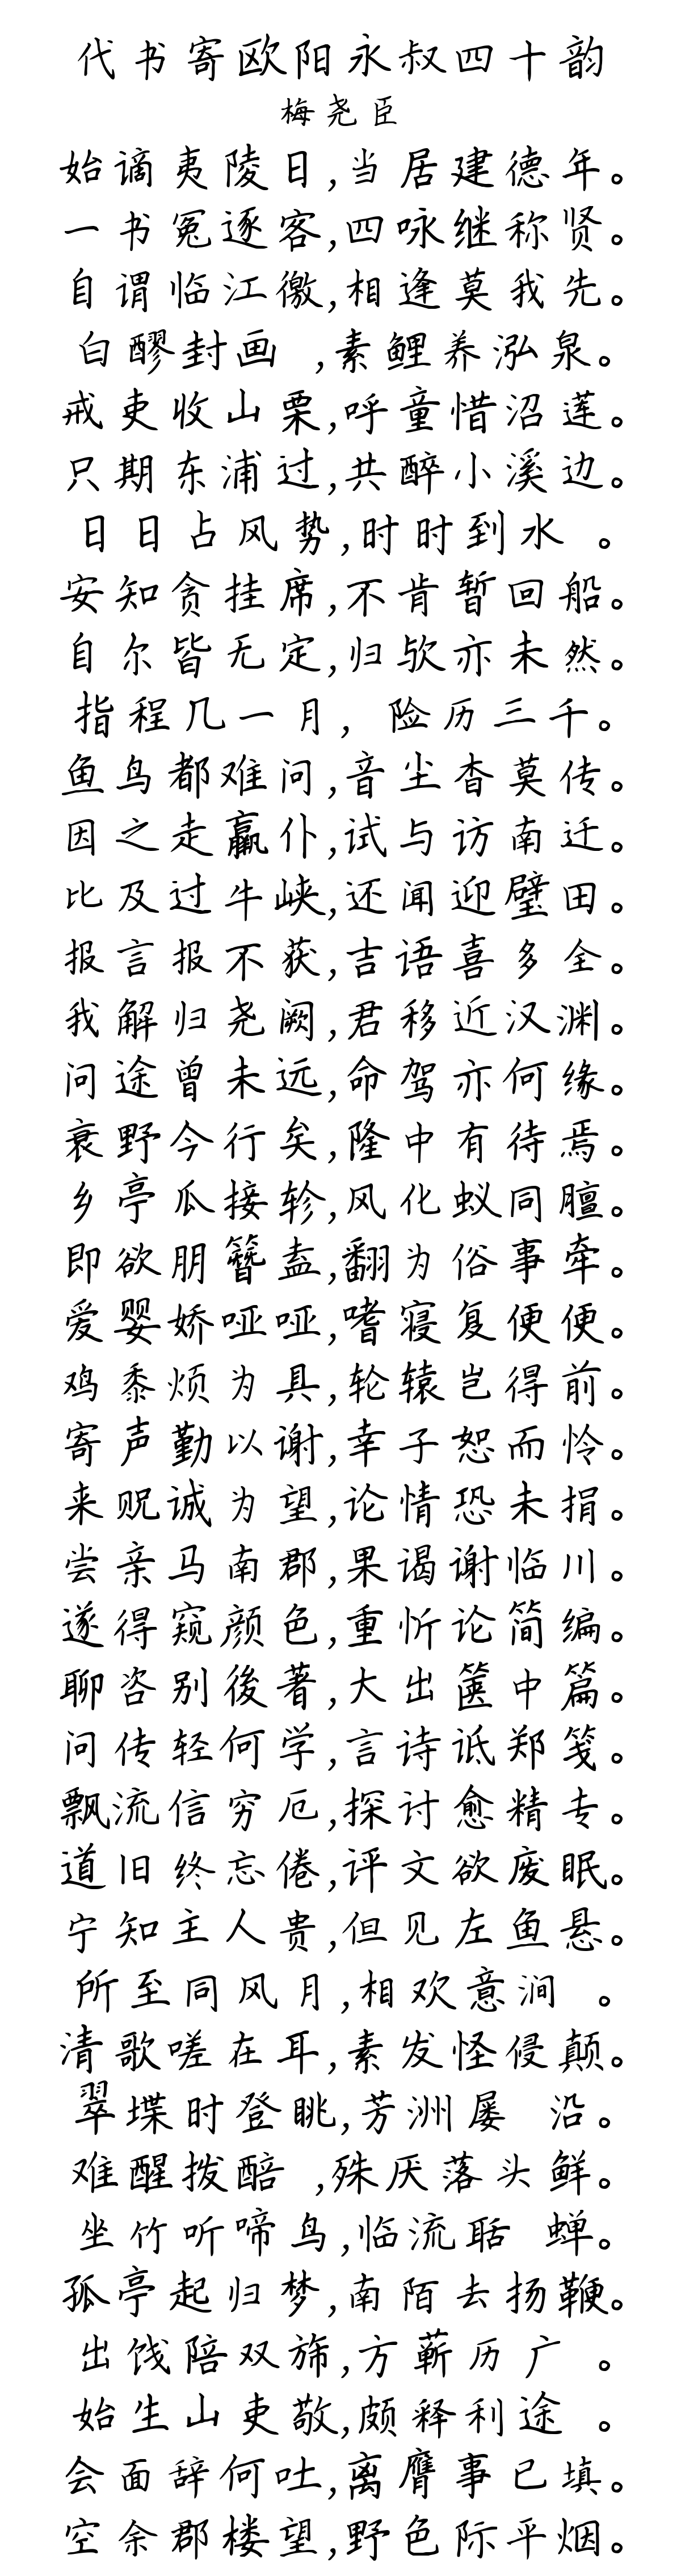 代书寄欧阳永叔四十韵
梅尧臣
始谪夷陵日,当居建德年。
一书冤逐客,四咏继称贤。
自谓临江徼,相逢莫我先。
白醪封画 ,素鲤养泓泉。
戒吏收山栗,呼童惜沼莲。
只期东浦过,共醉小溪边。
日日占风势,时时到水 。
安知贪挂席,不肯暂回船。
自尔皆无定,归欤亦未然。
指程几一月, 险历三千。
鱼鸟都难问,音尘杳莫传。
因之走赢仆,试与访南迁。
比及过牛峡,还闻迎璧田。
报言报不获,吉语喜多全。
我解归尧阙,君移近汉渊。
问途曾未远,命驾亦何缘。
衰野今行矣,隆中有待焉。
乡亭瓜接轸,风化蚁同膻。
即欲朋簪盍,翻为俗事牵。
爱婴娇哑哑,嗜寝复便便。
鸡黍烦为具,轮辕岂得前。
寄声勤以谢,幸子恕而怜。
来贶诚为望,论情恐未捐。
尝亲马南郡,果谒谢临川。
遂得窥颜色,重忻论简编。
聊咨别後著,大出箧中篇。
问传轻何学,言诗诋郑笺。
飘流信穷厄,探讨愈精专。
道旧终忘倦,评文欲废眠。
宁知主人贵,但见左鱼悬。
所至同风月,相欢意涧 。
清歌嗟在耳,素发怪侵颠。
翠堞时登眺,芳洲屡 沿。
难醒拨醅 ,殊厌落头鲜。
坐竹听啼鸟,临流聒 蝉。
孤亭起归梦,南陌去扬鞭。
出饯陪双斾,方蕲历广 。
始生山吏敬,颇释利途 。
会面辞何吐,离膺事已填。
空余郡楼望,野色际平烟。